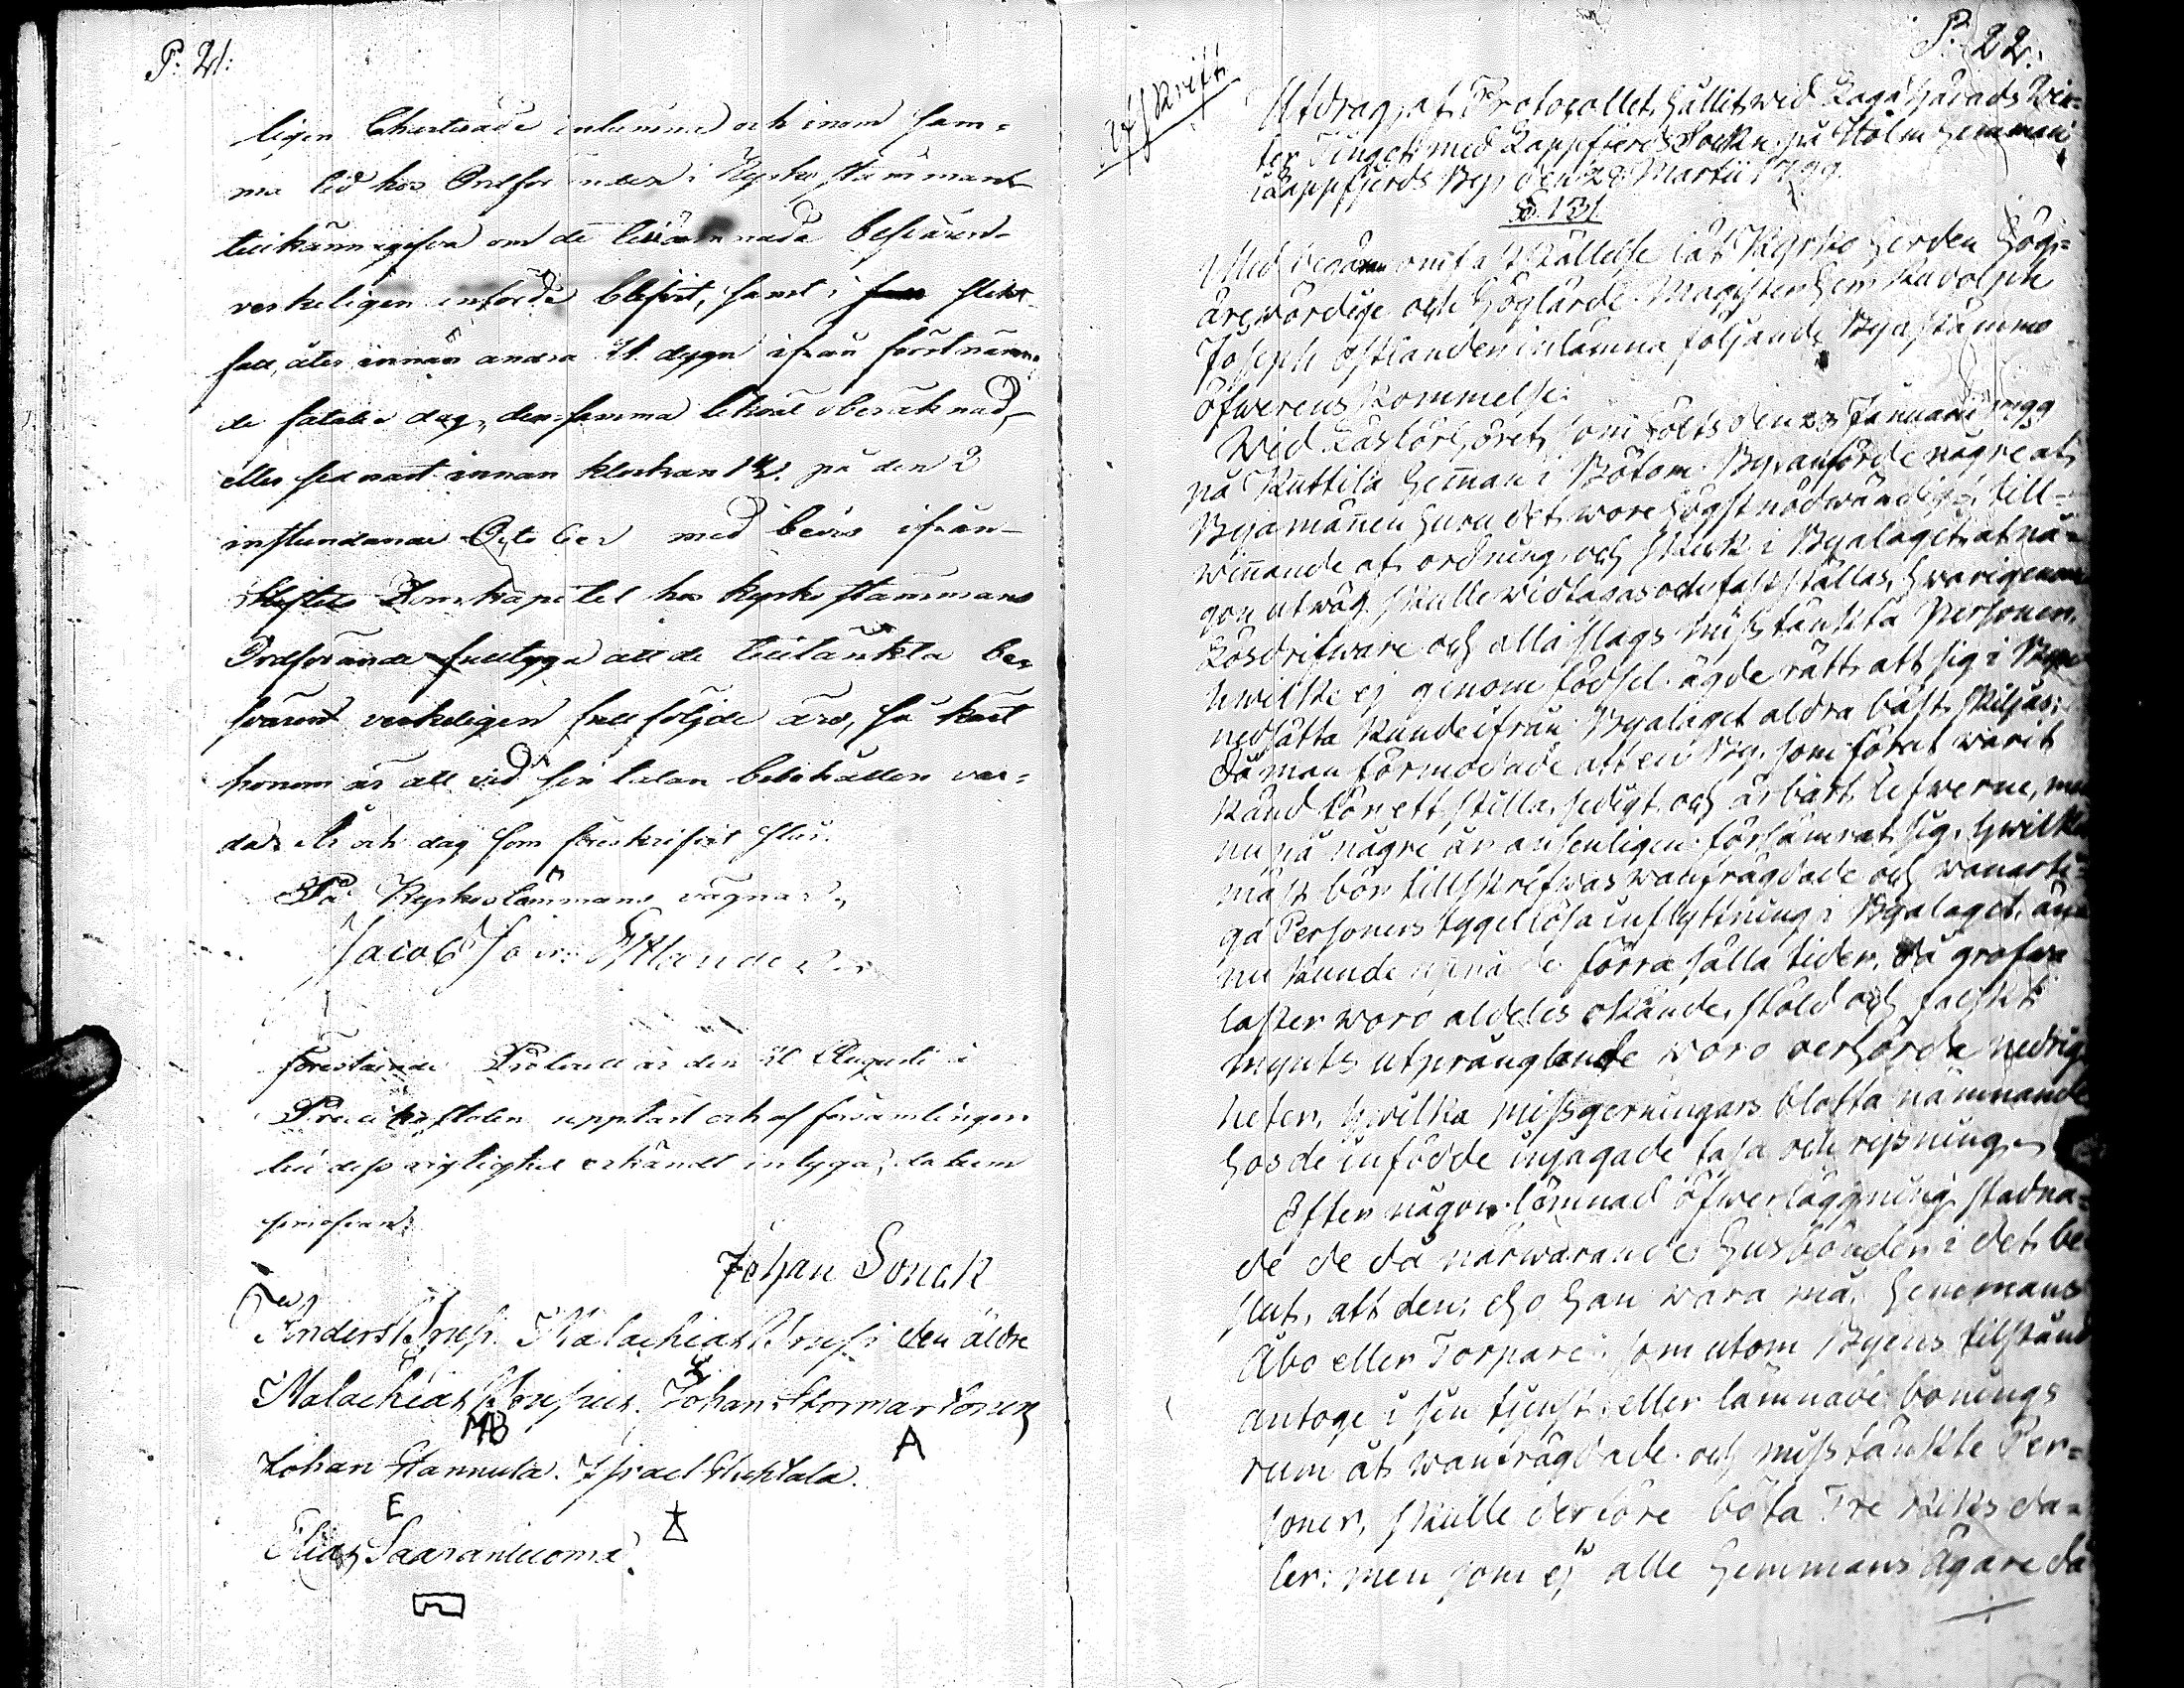 P: 21:
ligen Charterade inlämna och inom sam=
ma tid hos Ordföranden i Kyrko stämman
tillkännagifva om de besvären
verkeligen införde blifvit, samt i
fall, åter innan andra 21 dygn ifrån förstnämn
de fatalie dag, densamma likväl oberäknad,
eller sednast innan klockan 12. på den 2
instundande October med bevis ifrån
Domkapitel hos Kyrko stämmans
Ordförande fulltyga att de tilltänkta be=
svären verkeligen fullföljde äro, så kärt
honom är att vid sin talan bibehållen var=
da. År och dag som föreskrifvit står.
På Kyrkostämmans vägnar
Jacob
Förestående Protocoll är den 21 Augusti i
Predikostolen uppläst och af församlingen
till dess rigtighet erkändt intyga; datum
Johan Sonck
Anders Malachias den äldre
Malachias Johan Stormartonen
MB A
Johan Hannula. Israel Huhtala.
E
Elias Saarantuoma.
P. 22.
Afskrift
Utdrag af Protocollet, hållit wid Laga Härads Win=
ter Tinget med Lappfjerds Sockn på Holm Hemman
i Lappfjerds By, den 28 Martii 1799.
§. 131.
Med begäran om fastställelse lät Kyrko Herden Hög=
ärewördige och Höglärde Magister Herr
Joseph inlämna följande Byastämmo
öfwerens kommelse:
Wid Läsförhöret, som hölts den 23 Januarii 1799
på Kuttila Hemman i Bötom By, anförde någre af
Byamännen huru det wore högst nödwändigt, till=
winnande af ordning och skick i Byalaget, at nå=
gon utwäg skulle widtagas och fastställas, hwarigenom
Lösdrifware och alla slags misstänkta Personer,
hwilke ej genom födsel ägde rätt att sig i Byn
nedsätta kunde ifrån Byalaget aldra bäst skiljas;
då man förmodade att en By, som förut warit
känd för ett stilla, sedigt och ärbart lefwerne, men
nu på någre år ansenligen försämrat sig, hwilket
mäst bör tillskrifwas wanfrägdade och wanarti=
ga Personers tygellösa inflyttning i Byalaget, än
nu kunde förra sälla tider, då grofwa
laster woro aldeles okände, stöld och falskt
mynts utprånglande woro oerhörda nedrig
heter, hwilka missgerningars blotta nämnande
hos de infödde injagade fasa och rysning.
Efter någon lämnad öfwerläggning stadna=
de de då närwarande Husbönder i det be
slut, att den, eho han wara må, Hemmans
Åbo eller Torpare, som utom Byens tilstånd
antoge i sin tjenst, eller lämnade bonings
rum åt wanfrägdade och misstänkte Per=
soner, skulle derföre böta Tre Riksda=
ler: men som ej alle Hemmans Ägare då